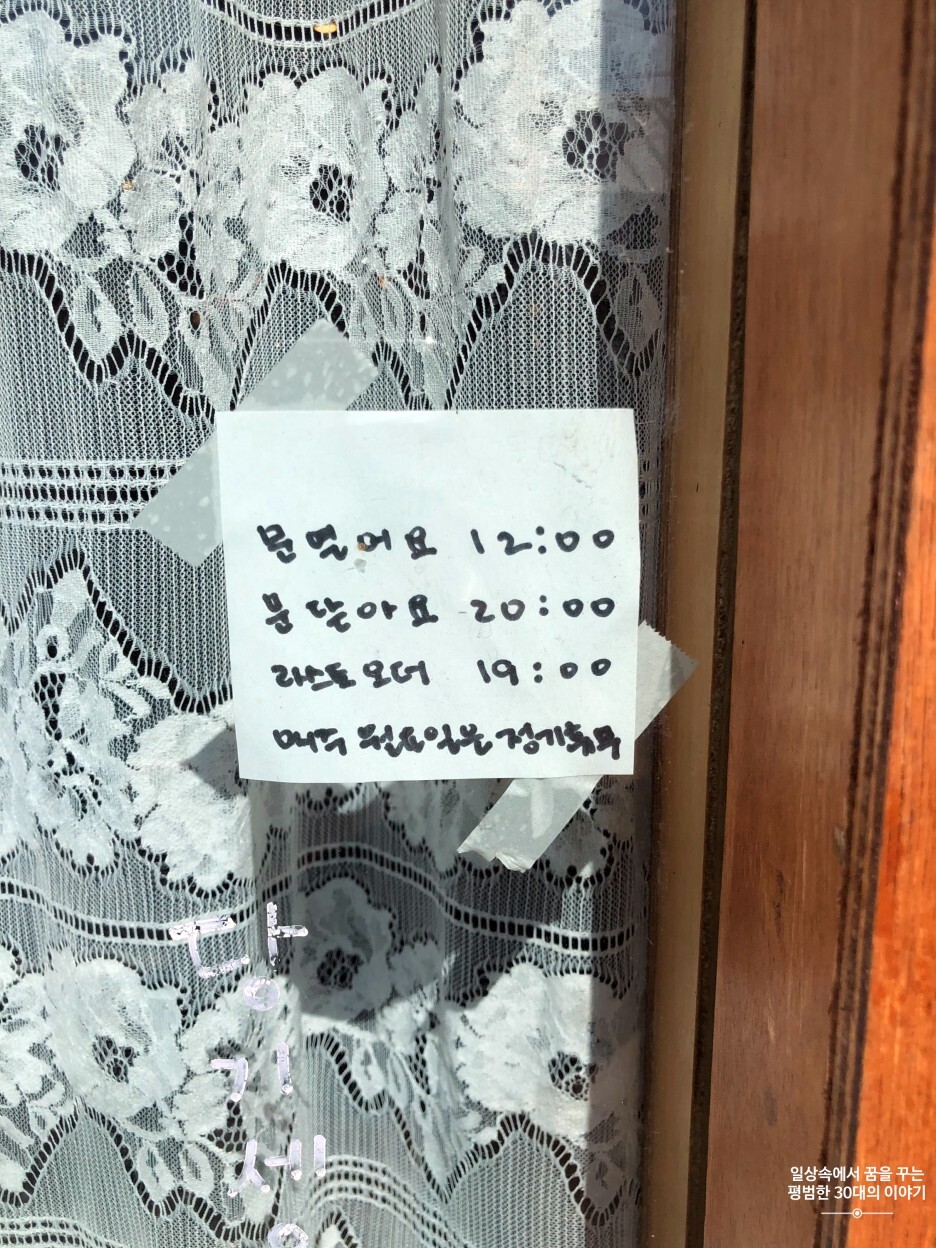 문 열어요 12:00
문 닫아요 20:00
라스트오더 19:00
매주 월요일은 정기휴무
당
기
세
일상속에서 꿈을 꾸는
평범한 30대의 이야기